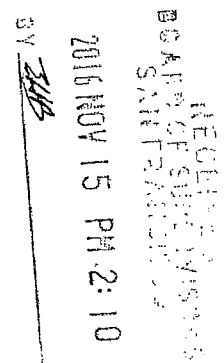 RECEIVED
BOARD OF SUPERVISORS
SAN FRANCISCO
2016 NOV 15 PM 2:10
BY